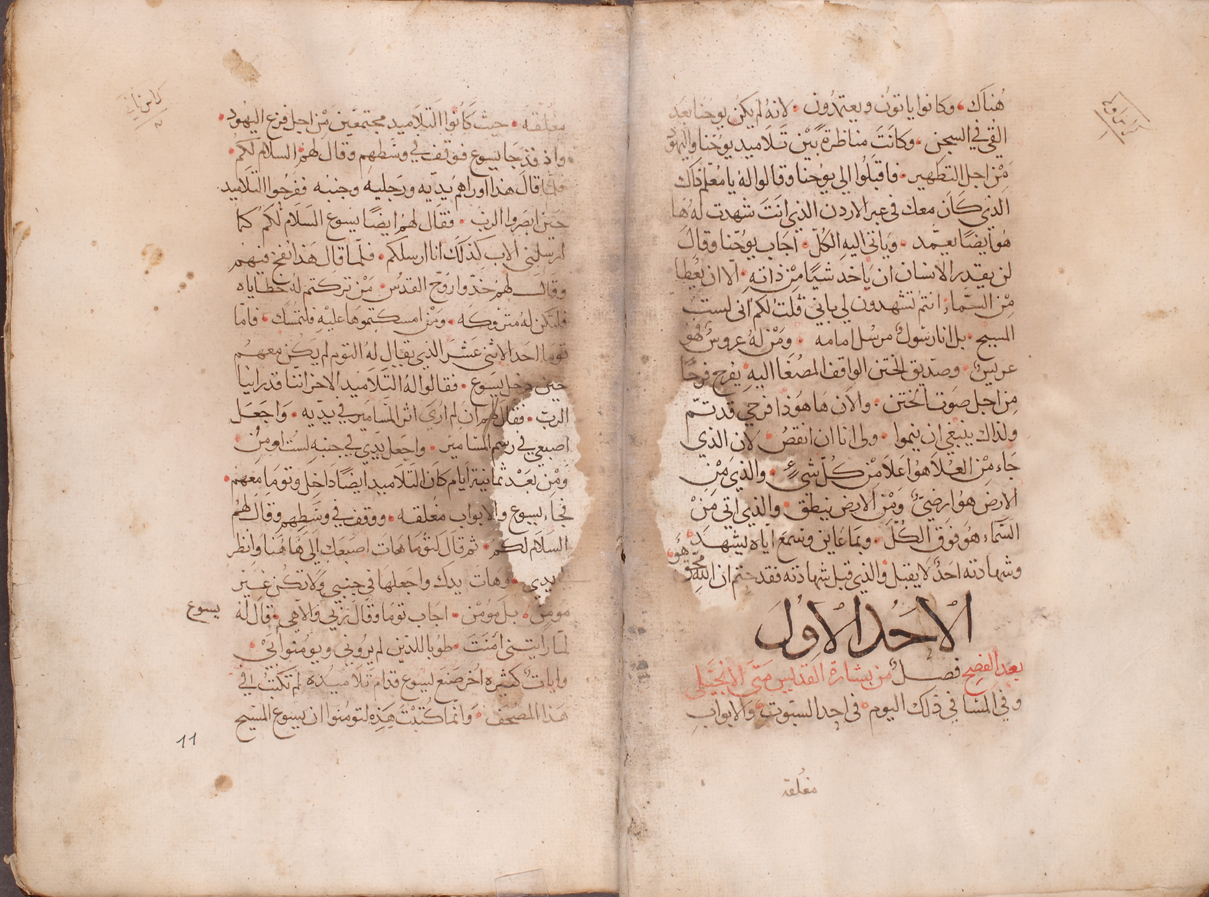 هناك، وكانوا ياتون ويعتمدون. لانه لم يكن يوحنا بعد
القي في السجن. وكانت مناظرة بين تلاميد يوحنا واليهود
من اجل التطهير. فاقبلوا الي يوحنا وقالوا له يا معلم ذاك
الذي كان معك في عبر الاردن الذي انت شهدت له ها
هو ايضا يعمد. وياتي اليه الكل. اجاب يوحنا وقال
لن يقدر الانسان ان ياخد شيا من ذاته. الا ان يعطا
من السماء. انتم تشهدون لي باني قلت لكم اني لست
المسيح. بل انا رسول مرسل امامه. ومن له عروس فهو
عريس. وصديق الختن الواقف المصغا اليه يفرح فرحا
من اجل صوت الختن. والان ها هوذا فرحي قد تم
ولذاك ينبغي ان ينموا. ولي انا ان انقص. لان الذي
جاء من العلا هو اعلا من كل شيء. والذي من
الارض هو ارضي ومن الارض ينطق. والذي اتي من
السماء هو فوق الكل. وبما عاين وسمع اياه يشهد
وشهادته احد لا يقبل والذي قبل شهادته فقد ختم ان الله
محق هو
الاحد الاول
بعد الفصح فصل من بشارة القديس متى الانجيلي
وفي المسا في ذلك اليوم. في احد السبوت. والابواب
مغلقة
مغلقه. حيث كانوا التلاميد مجتمعين من اجل فزع اليهود.
واذ قد جا يسوع فوقف في وسطهم وقال لهم السلام لكم.
فلما قال هذا اوراهم يديه ورجليه وجنبه ففرحوا التلاميد
حين ابصروا الرب. فقال لهم ايضا يسوع السلام لكم كما
ارسلني الاب كذلك انا ارسلكم. فلما قال هذا نفخ فيهم
وقال لهم خدوا روح القدس. من تركتم له خطاياه
فلتكن له متروكه. ومن امسكتموها عليه فلتمسك. فاما
توما احد الاثني عشر الذي يقال له التوم لم يكن معهم
حين دخل يسوع. فقالوا له التلاميد الاخر اننا قد راينا
الرب. فقال لهم ان لم ارى اثر المسامير في يديه. واجعل
اصبعي في رسم المسامير. واجعل يدي في جنبه لست اومن
ومن بعد ثمانية ايام كان التلاميد ايضا داخل وتوما معهم.
فجا يسوع والابواب مغلقه. ووقف في وسطهم وقال لهم
السلام لكم. ثم قال لتوما هات اصبعك الي هاهنا وانظر
يدي. وهات يدك واجعلها في جنبي ولا تكن غير
مومن. بل مومن. اجاب توما وقال ربي والاهي. قال له
يسوع
لما رايتني امنت. طوبا للدين لم يروني ويومنوا بي.
وايات كثيره اخر صنع يسوع قدام تلاميده لم تكتب في
هذا المصحف. وانما كتبت هذه لتومنوا ان يسوع المسيح
11